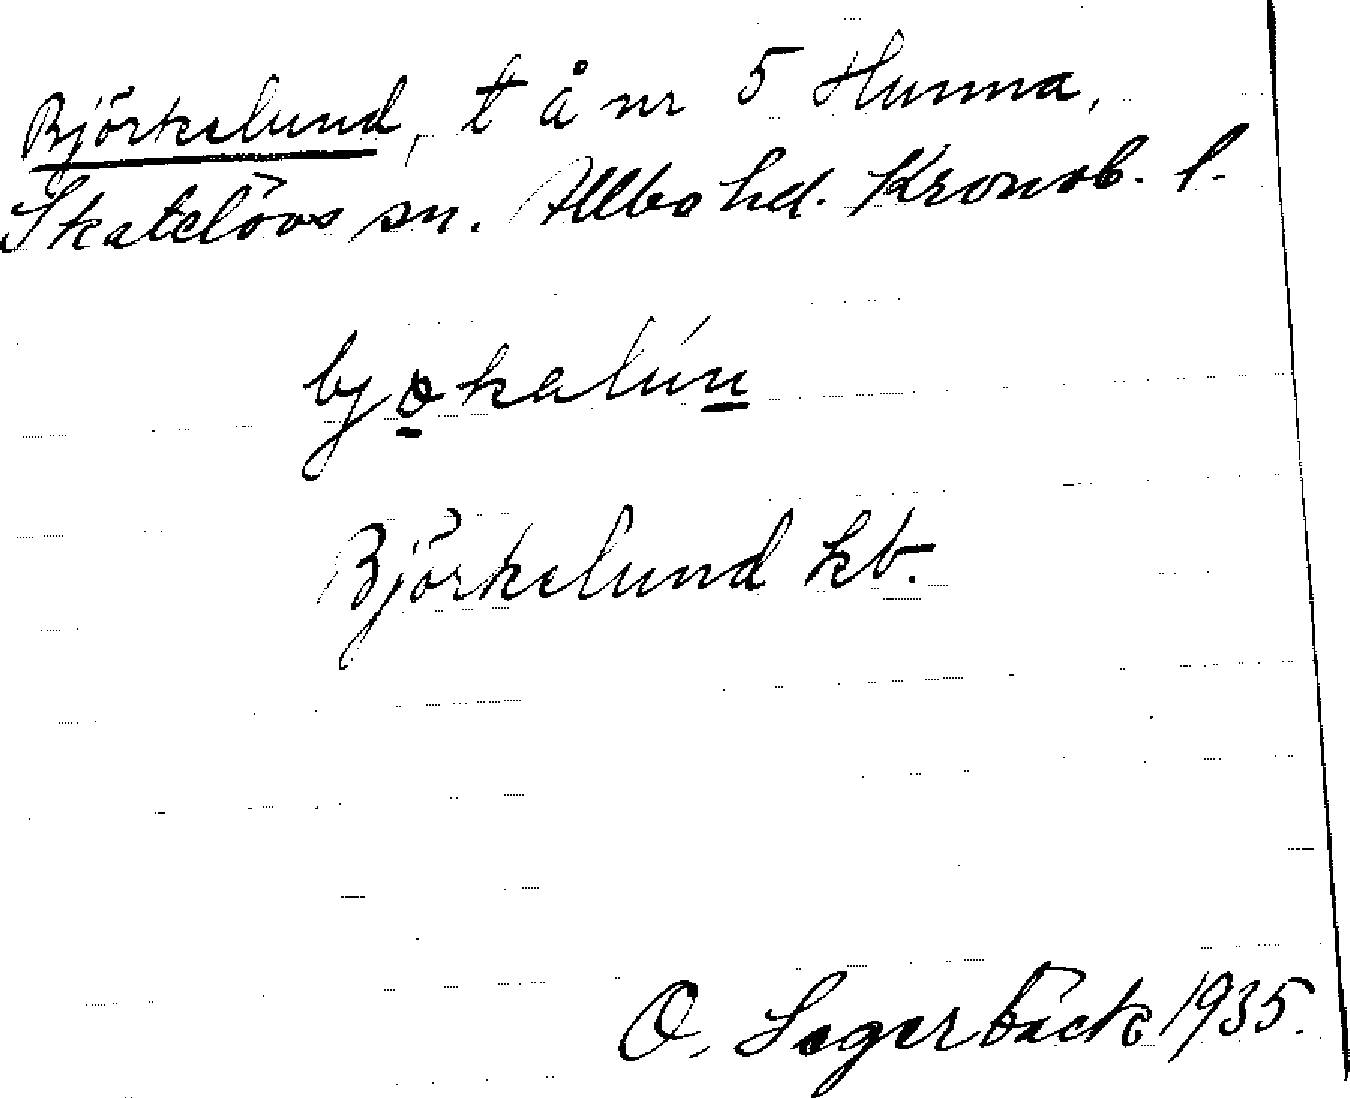 Björkelund, t å nr 5 Hunna,
Skatelövs sn. Allbo hd. Kronob. l.
bjokalún
Björkelund kb.
O. Lagerbäck 1935.